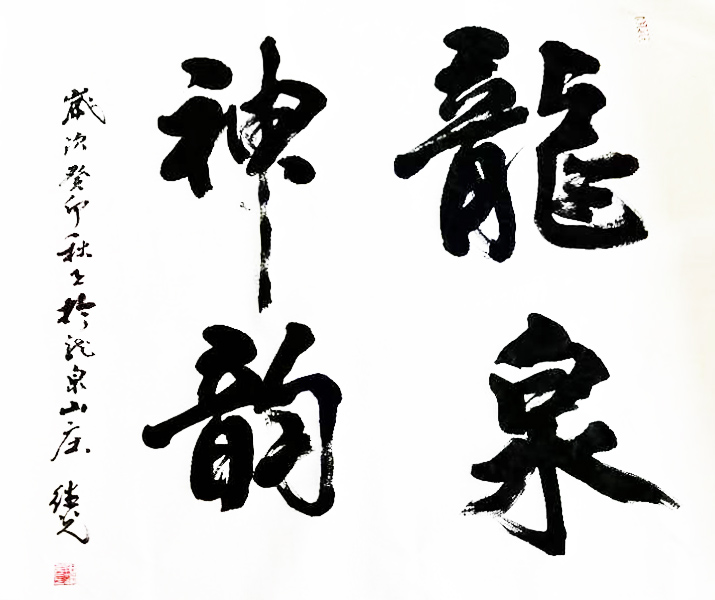 龍泉
神韵
歲次癸卯秋上於龍泉山庄